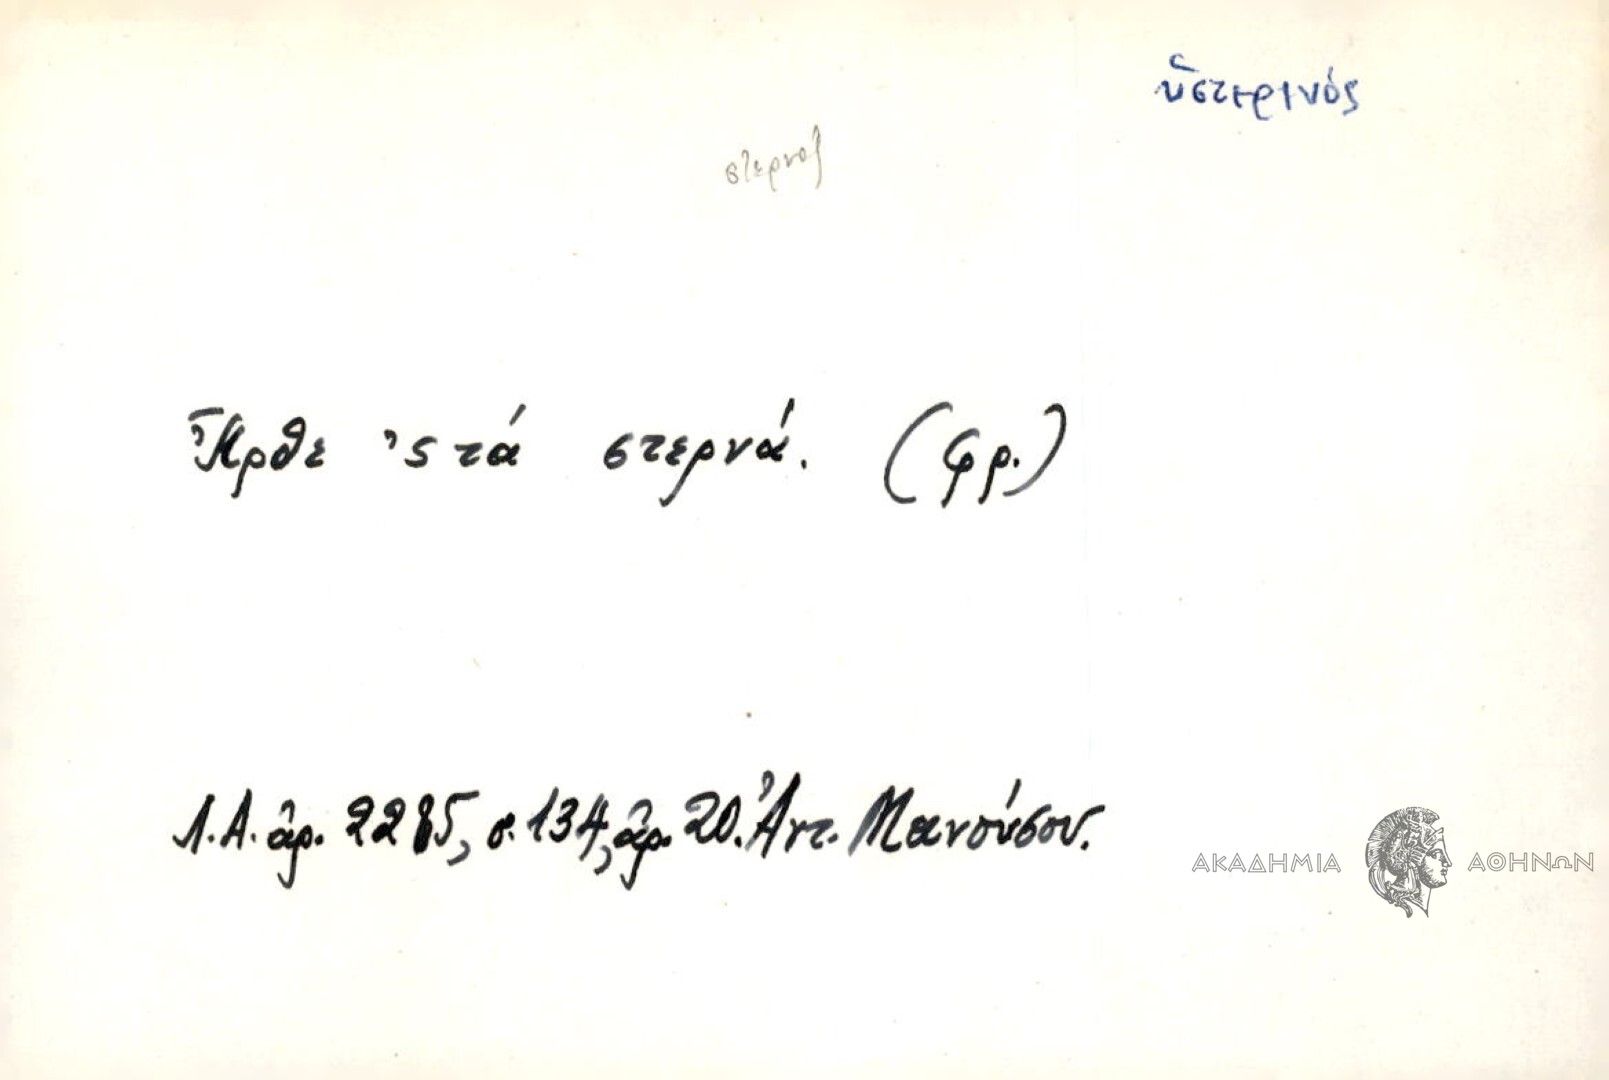 ὑστερινός
στερνός
Ἦρθε 'ς τά στερνά. (φρ.)
Λ.Α. ἀρ. 2285, σ. 134, ἀρ. 20. Ἀντ. Μανούσου.
ΑΚΑΔΗΜΙΑ ΑΘΗΝΩΝ